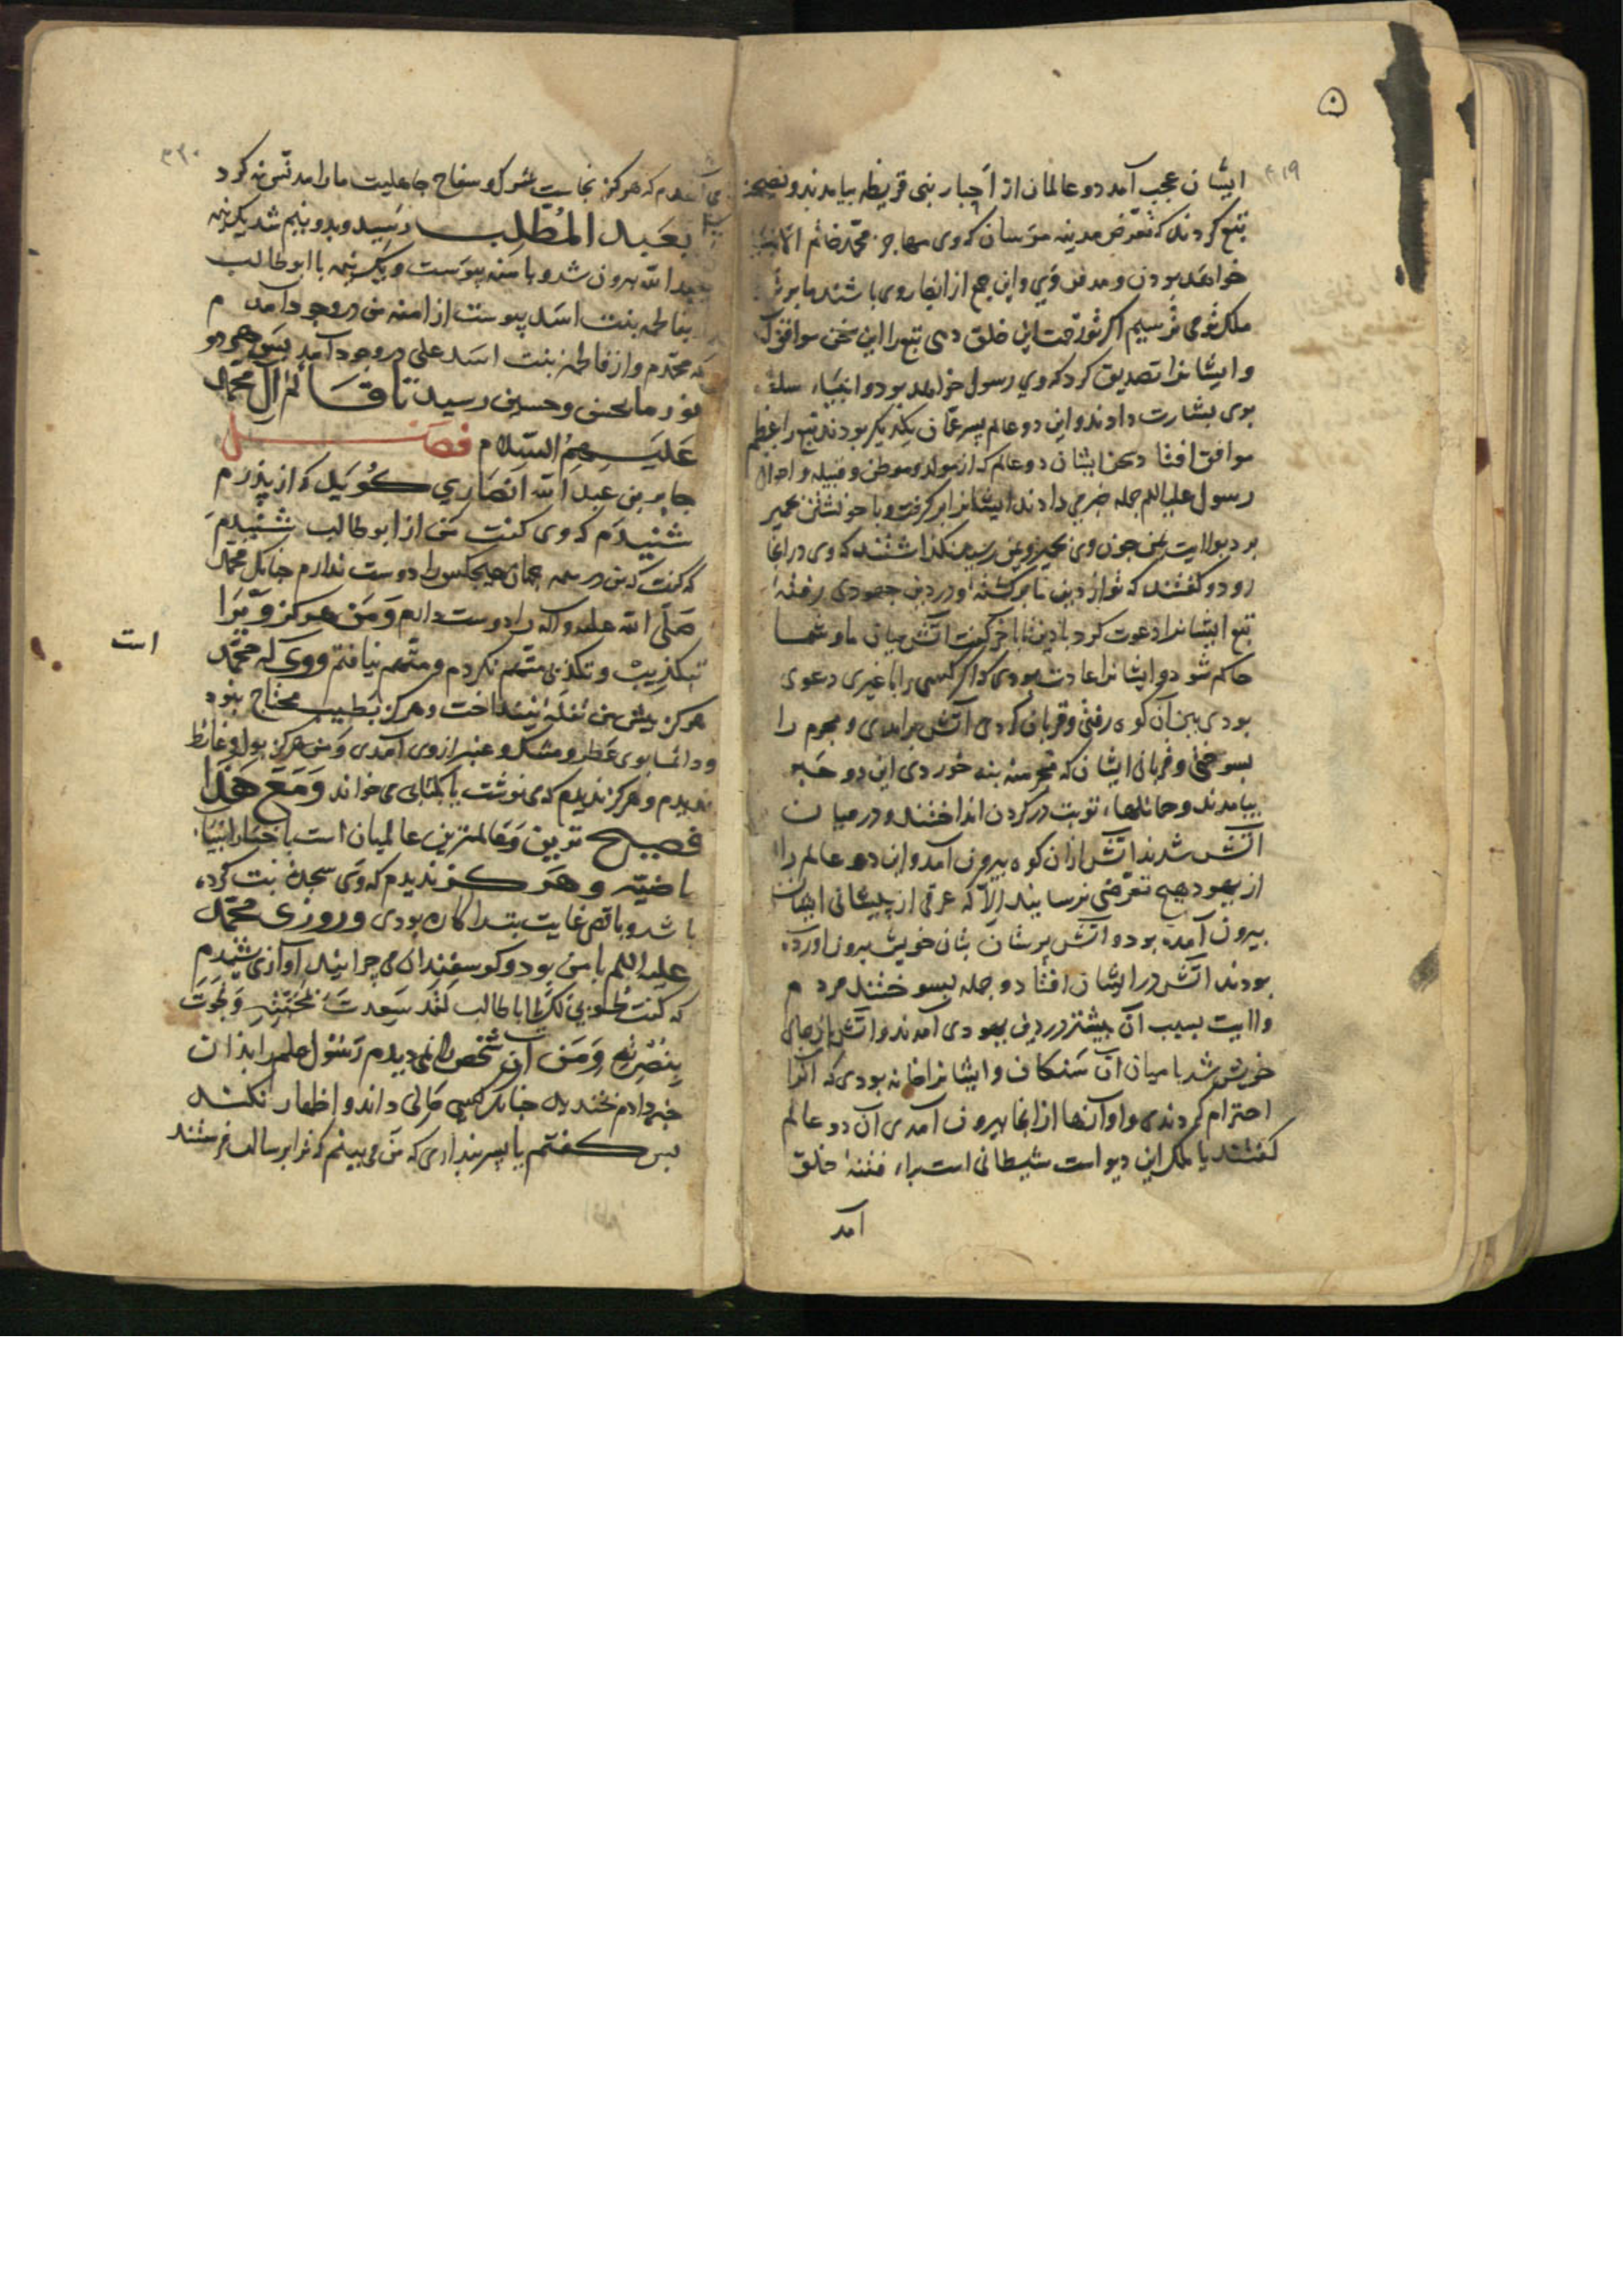 ایشان عجب آمد دو عالمان از احبار بنی قریظه بیامدند و نصیحت
تبع کردند که تعرض مدینه مرسان که وی مهاجر محمد خاتم الانبیا
خواهد بودن و مدفن وی و این جمع از انصار وی باشند ما بر تو
ملک تو می ترسیم اگر تو زحمت این خلق دهی تبع را این سخن موافق
و ایشانرا تصدیق کرد که وی رسول خواهد بود و انبیاء سلف
بوی بشارت دادند و این دو عالم پسر عمان یکدیگر بودند تبع را عظیم
موافق افتاد سخن ایشان دو عالم که از مولد و موطن و قبیله و احوال
رسول علیه السلم جمله خبر می دادند ایشانرا بر گرفت و با خویشتن بحمیر
برد بولایت یمن چون وی بحمیر و یمن رسید بنگذاشتند که وی در انجا
رود و گفتند که تو از دین ما بر گشته و در دین جهودی رفته
تبع ایشانرا دعوت کرد با دین تا باخر گفت آتش میان ما و شما
حاکم شود و ایشانرا عادت بودی که اگر کسی را با غیری دعوی
بودی ببن آن کوه رفتی و قربان کردی آتش برامدی و مجرم را
بسوختی و قربانی ایشان که
بیامدند و حمائلهاء توریت در گردن انداختند و در میان
آتش شدند آتش ازان کوه بیرون آمد و این دو عالم را
از یهود هیچ تعرضی نرسانید الا که عرقی از پیشانی ایشان
بیرون آمده بود و آتش پرستان بتان خویش بیرون آورده
بودند آتش در ایشان افتاد و جمله بسوختند مردم
ولایت بسبب آن بیشتر در دین یهودی آمدند و آتش باز جای
خویش شد با میان آن سنگاف و ایشانرا خانه بودی که آنرا
احترام کردندی و اوازها از انجا بیرون آمدی آن دو عالم
گفتند یا ملک این دیو است شیطانی است براء فتنۀ خلق
آمد
می آمدم که هرگز نجاست شرک و سفاح جاهلیت ما را مدنس نه کرد
بعبد المطلب رسید و بدو نیم شد یک نیمه
بعبد الله بیرون شد و بامنه پیوست و یک نیمه با ابو طالب
بفاطمه بنت اسد پیوست از امنه من در وجود آمدم
که محمدم و از فاطمه بنت اسد علی در وجود آمد پس هر دو
نور ما بحسن و حسین رسید تا قائم آل محمد
علیهم السلام فصل
جابر بن عبد الله انصاری گوید که از پدرم
شنیدم که وی گفت من از ابو طالب شنیدم
که گفت که من در همه جهان هیچکس را دوست ندارم چنانک محمد
صلی الله علیه و اله را دوست دارم و من هرگز ویرا
بتکذیب و تکذبی متهم نکردم و متهم نیافتم و وی که محمد
است
هرگز پیش من تفله نینداخت و هرگز بطبیب محتاج نبود
و دائما بوی عطر و مشک و عنبر از وی آمدی و من هرگز بول و غائط
ندیدم و هرگز ندیدم که می نوشت یا کتابی می خواند و مع هذا
فصیح ترین و عالمترین عالمیان است باخبار انبیاء
ماضیه و هرگز ندیدم که وی سجدۀ بت کرده
باشد و باقصی غایت بتدا کاره بودی و روزی محمد
علیه السلم با من بود و گوسفندان می چرانید آوازی شنیدم
که گفت طوبی لک یا ابا طالب لقد سعدت
و من آن شخص را نمی دیدم رسول علم را بدان
خبر دادم بخندید چنانک کسی حالی داند و اظهار نکند
پس گفتم یا پسر برادری که من می بینم که ترا برسالت فرستند